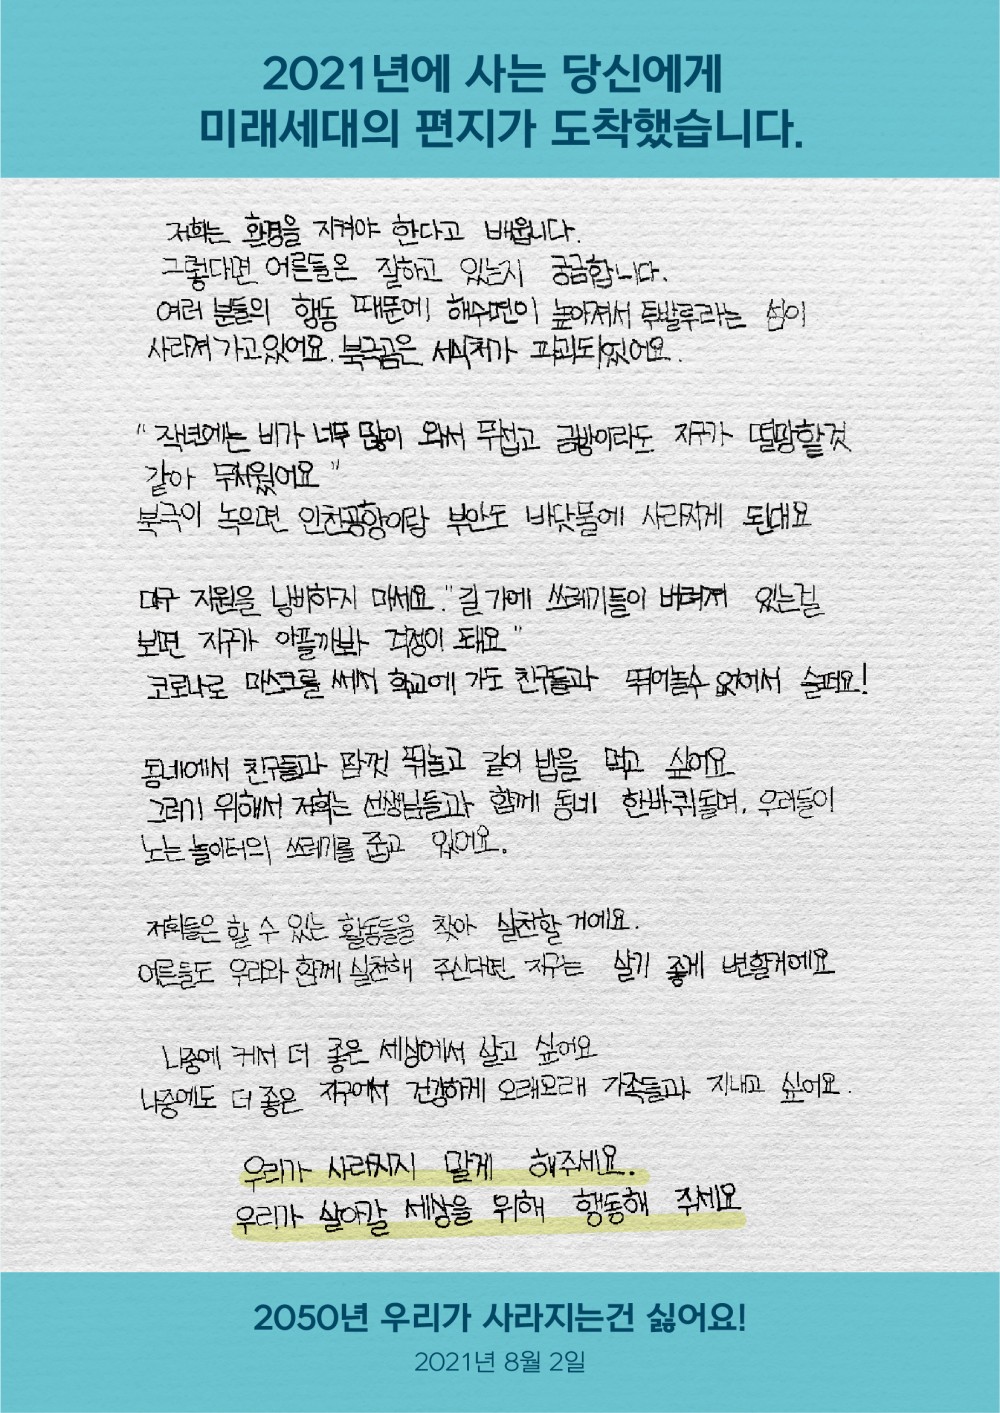 2021년에 사는 당신에게
미래세대의 편지가 도착했습니다.
저희는 환경을 지켜야 한다고 배웁니다.
그렇다면 어른들은 잘하고 있는지 궁금합니다.
여러 분들의 행동 때문에 해수면이 높아져서 투발루라는 섬이
사라져가고있어요. 북극곰은 서식처가 파괴되있어요.
"작년에는 비가 너무 많이 와서 무섭고 금방이라도 지구가 멸망할것
같아 무서웠어요"
북극이 녹으면 인천공항이랑 부안도 바닷물에 사라지게 된대요
마구 자원을 낭비하지 마세요. "길가에 쓰레기들이 버려져 있는걸
보면 지구가 아플까봐 걱정이 돼요"
코로나로 마스크를 써서 학교에 가도 친구들과 뛰어놀수 없어서 슬퍼요!
동네에서 친구들과 맘껏 뛰놀고 같이 밥을 먹고 싶어요
그러기 위해서 저희는 선생님들과 함께 동네 한바퀴돌며, 우리들이
노는 놀이터의 쓰레기를 줍고 있어요.
저희들은 할 수 있는 활동들을 찾아 실천할 거에요.
어른들도 우리와 함께 실천해 주신다면 지구는 살기 좋게 변할거에요
나중에 커서 더 좋은 세상에서 살고 싶어요
나중에도 더 좋은 지구에서 건강하게 오래오래 가족들과 지내고 싶어요.
우리가 사라지지 않게 해주세요.
우리가 살아갈 세상을 위해 행동해 주세요
2050년 우리가 사라지는건 싫어요!
2021년 8월 2일